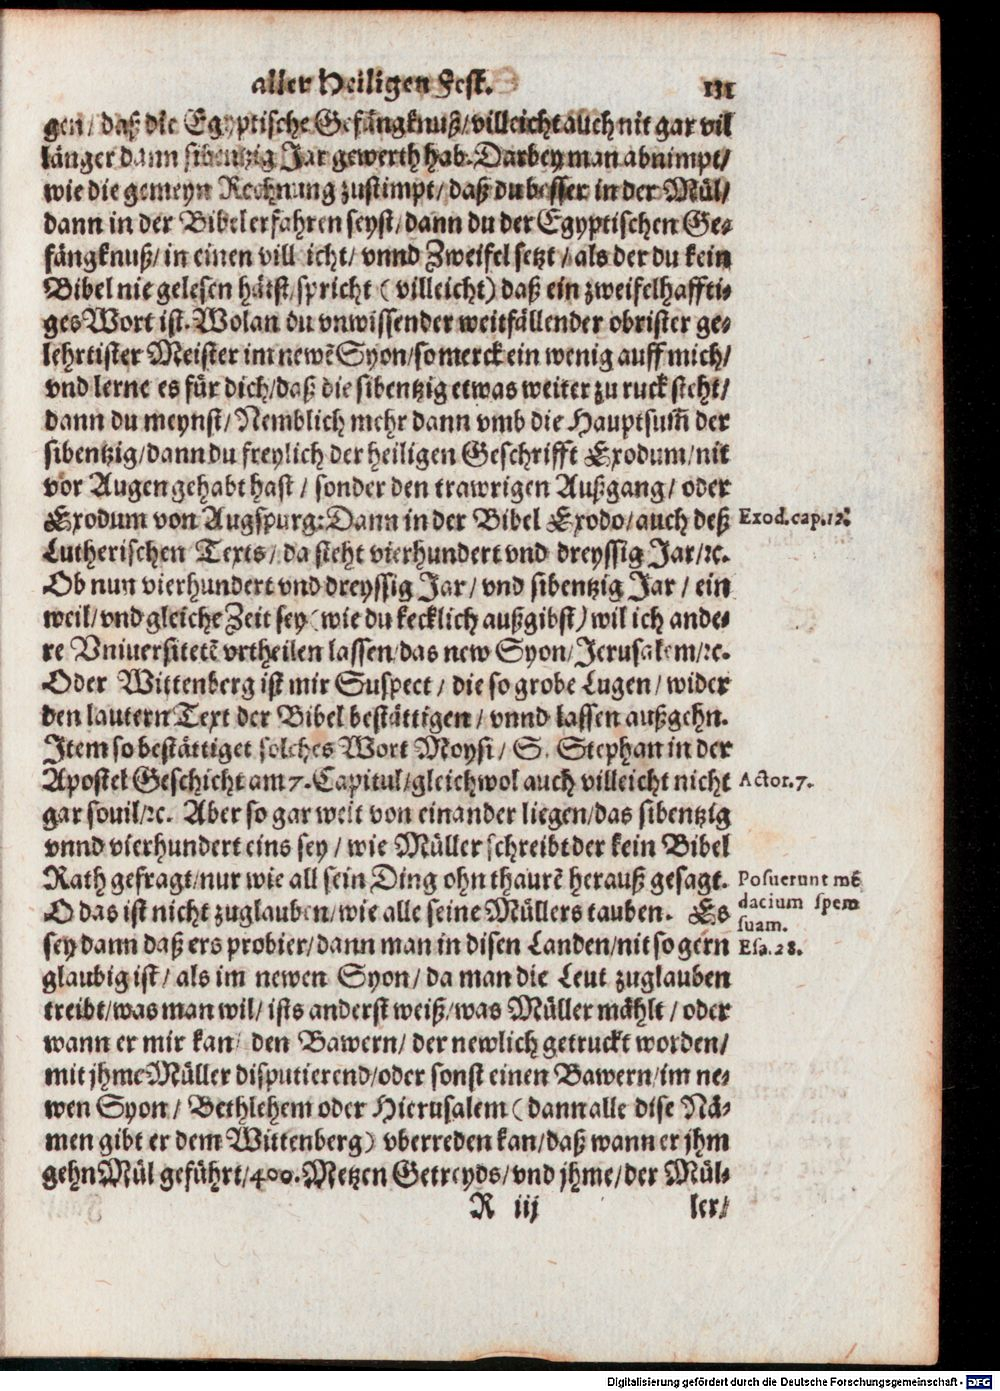 aller Heiligen Fest. 131
gen/ daß die Egyptische Gefängknuß/ villeicht auch nit gar vil
länger dann sibentzig Jar gewerth hab. Darbey man abnimpt/
wie die gemeyn Rechnung zustimpt/ daß du besser in der Mül/
dann in der Bibel erfahren seyst/ dann du der Egyptischen Ge-
fängknuß/ in einen villeicht/ vnnd Zweifel setzt/ als der du kein
Bibel nie gelesen hätst/ spricht (villeicht) daß ein zweifelhaffti-
ges Wort ist. Wolan du vnwissender weitfällender obrister ge-
lehrtister Meister im newē Syon/ so merck ein wenig auff mich/
vnd lerne es für dich/ daß die sibentzig etwas weiter zu ruck steht/
dann du meynst/ Nemblich mehr dann vmb die Hauptsum̄ der
sibentzig/ dann du freylich der heiligen Geschrifft Exodum/ nit
vor Augen gehabt hast/ sonder den trawrigen Außgang/ oder
Exodum von Augspurg: Dann in der Bibel Exodo/ auch deß
Exod. cap. 12.
Lutherischen Texts/ da steht vierhundert vnd dreyssig Jar/ꝛc.
Ob nun vierhundert vnd dreyssig Jar/ vnd sibentzig Jar/ ein
weil/ vnd gleiche Zeit sey (wie du kecklich außgibst) wil ich ande-
re Vniuersitetē vrtheilen lassen/ das new Syon/ Jerusalem/ꝛc.
Oder Wittenberg ist mir Suspect/ die so grobe Lugen/ wider
den lautern Text der Bibel bestättigen/ vnnd lassen außgehn.
Item so bestättiget solches Wort Moysi/ S. Stephan in der
Apostel Geschicht am 7. Capitul/ gleichwol auch villeicht nicht
Actor. 7.
gar souil/ꝛc. Aber so gar weit von einander liegen/ das sibentzig
vnnd vierhundert eins sey/ wie Müller schreibt der kein Bibel
Rath gefragt/ nur wie all sein Ding ohn thaurē herauß gesagt.
Posuerunt mē
dacium spem
suam.
Esa. 28.
O das ist nicht zuglauben/ wie alle seine Müllers tauben. Es
sey dann daß ers probier/ dann man in disen Landen/ nit so gern
glaubig ist/ als im newen Syon/ da man die Leut zuglauben
treibt/ was man wil/ ists anderst weiß/ was Müller mählt/ oder
wann er mir kan/ den Bawern/ der newlich getruckt worden/
mit jhme Müller disputierend/ oder sonst einen Bawern/ im ne-
wen Syon/ Bethlehem oder Hierusalem (dann alle dise Nä-
men gibt er dem Wittenberg) vberreden kan/ daß wann er jhm
gehn Mül geführt/ 400. Metzen Getreyds/ vnd jhme/ der Mül-
R iij ler/
Digitalisierung gefördert durch die Deutsche Forschungsgemeinschaft - DFG